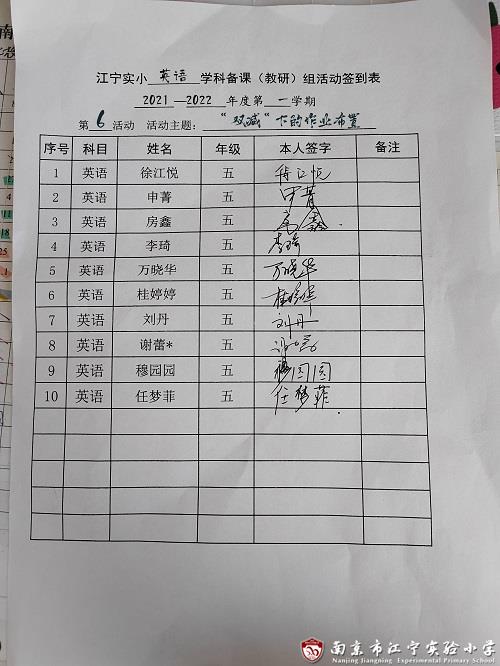 江宁实小 英语 学科备课（教研）组活动签到表
2021—2022 年度第 一 学期
第 6 活动 活动主题：“双减”下的作业布置
序号 科目 姓名 年级 本人签字 备注
1 英语 徐江悦 五 徐江悦
2 英语 申菁 五 申菁
3 英语 房鑫 五 房鑫
4 英语 李琦 五 李琦
5 英语 万晓华 五 万晓华
6 英语 桂婷婷 五
7 英语 刘丹 五 刘丹
8 英语 谢蕾* 五
9 英语 穆园园 五 穆园园
10 英语 任梦菲 五 任梦菲
南京市江宁实验小学
Nanjing Jiangning Experimental Primary School